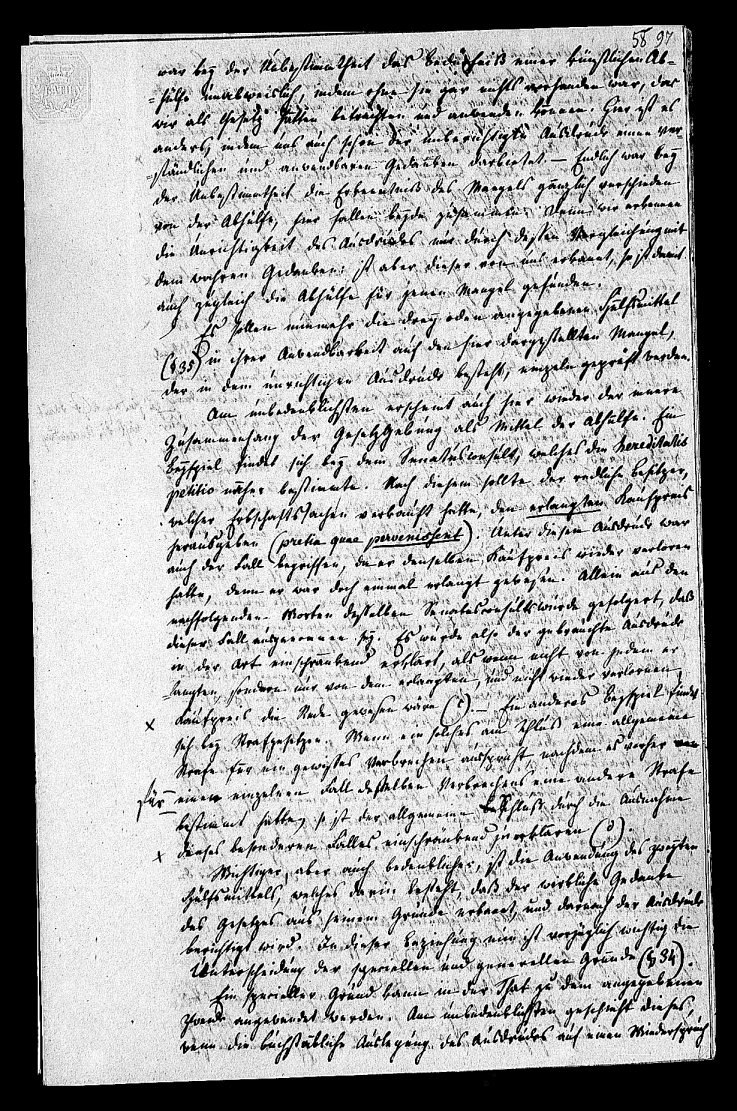 58 97
war bey der Unbestimmtheit das Bedürfniß einer künstlichen Ab-
-hülfe unabweislich, indem ohne sie gar nichts vorhanden war, das
wir als Gesetz hätten betrachten und anwenden können. Hier ist es
anders, indem uns auch schon der unberichtigte Ausdruck einen ver
-ständlichen und anwendbaren Gedanken darbietet – Endlich war bey
der Unbestimmtheit die Erkenntniß des Mangels gänzlich verschieden
von der Abhülfe, hier fallen beyde zusammen. Denn wir erkennen
die Unrichtigkeit des Ausdrucks nur durch dessen Vergleichung mit
dem wahren Gedanken; ist aber dieser von uns erkannt, so ist damit
auch zugleich die Abhülfe für jenen Mangel gefunden.
Es sollen nunmehr die drey oben angegebenen Hülfsmittel
(§35) in ihrer Anwendbarkeit auf den hier dargestellten Mangel,
der in dem unrichtigen Ausdruck besteht, einzeln geprüft werden.
Am unbedenklichsten erscheint auch hier wieder der innere
Zusammenhang der Gesetzgebung als Mittel der Abhülfe. Ein
Beyspiel findet sich bey dem Senatusconsult, welches die hereditatis
petitio näher bestimmte. Nach diesem sollte der redliche Besitzer,
welcher Erbschaftssachen verkauft hatte, den erlangten Kaufpreis
herausgeben (pretia quae pervenissent). Unter diesen Ausdruck war
auch der Fall begriffen, da er denselben Kaufpreis wieder verloren
hatte, denn er war doch einmal erlangt gewesen. Allein aus den
nachfolgenden Worten desselben Senatusconsults wurde gefolgert, daß
dieser Fall ausgenommen sey. Es wurde also der gebrauchte Ausdruck
in der Art einschränkend erklärt, als wenn nicht von jedem er
-langten, sondern nur von dem erlangten, und nicht wieder verlornen
Kaufpreis die Rede gewesen wäre (c). – Ein anderes Beyspiel findet
sich bey Strafgesetzen. Wenn ein solches am Schluß eine allgemeine
Strafe für ein gewisses Verbrechen ausspricht, nachdem es vorher
für einen einzelnen Fall desselben Verbrechens eine andere Strafe
bestimmt hatte, so ist der allgemeine Beschluß durch die Ausnahme
dieses besonderen Falles einschränkend zu erklären (d).
Wichtiger, aber auch bedenklicher, ist die Anwendung des zweyten
Hülfsmittels, welches darin besteht, daß der wirkliche Gedanke
des Gesetzes aus seinem Grunde erkannt, und darnach der Ausdruck
berichtigt wird. In dieser Beziehung nun ist vorzüglich wichtig die
Unterscheidung der speciellen und generellen Gründe (§34).
Ein specieller Grund kann in der That zu dem angegebenen
Zweck angewendet werden. Am unbedenklichsten geschieht dieses,
wenn die buchstäbliche Auslegung des Ausdrucks auf einen Widerspruch